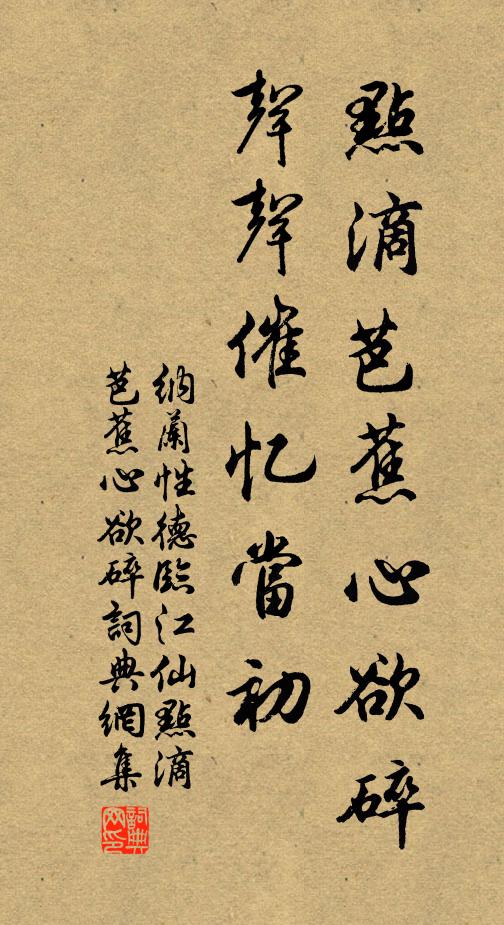 點滴芭蕉心欲碎
聲聲催忆當初
納蘭性德臨江仙點滴
芭蕉心欲碎詞典網集
詞典
网印